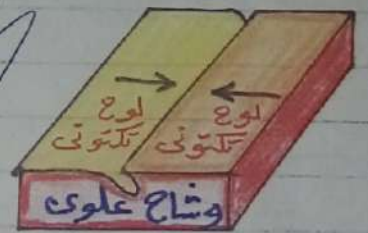 لوح
تكتونى
لوح
تكتونى
وشاح علوى